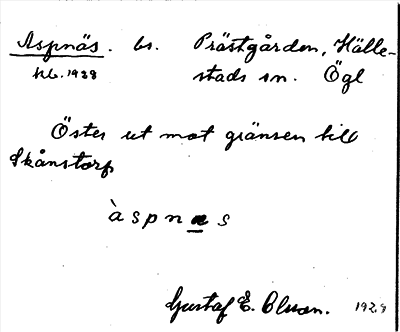 Aspnäs. bs. Prästgården, Hälle-
stads sn. Ögl
1928
Öster ut mot gränsen till
Skånstorp
àspnæs
Gustaf E. Olsson. 1928